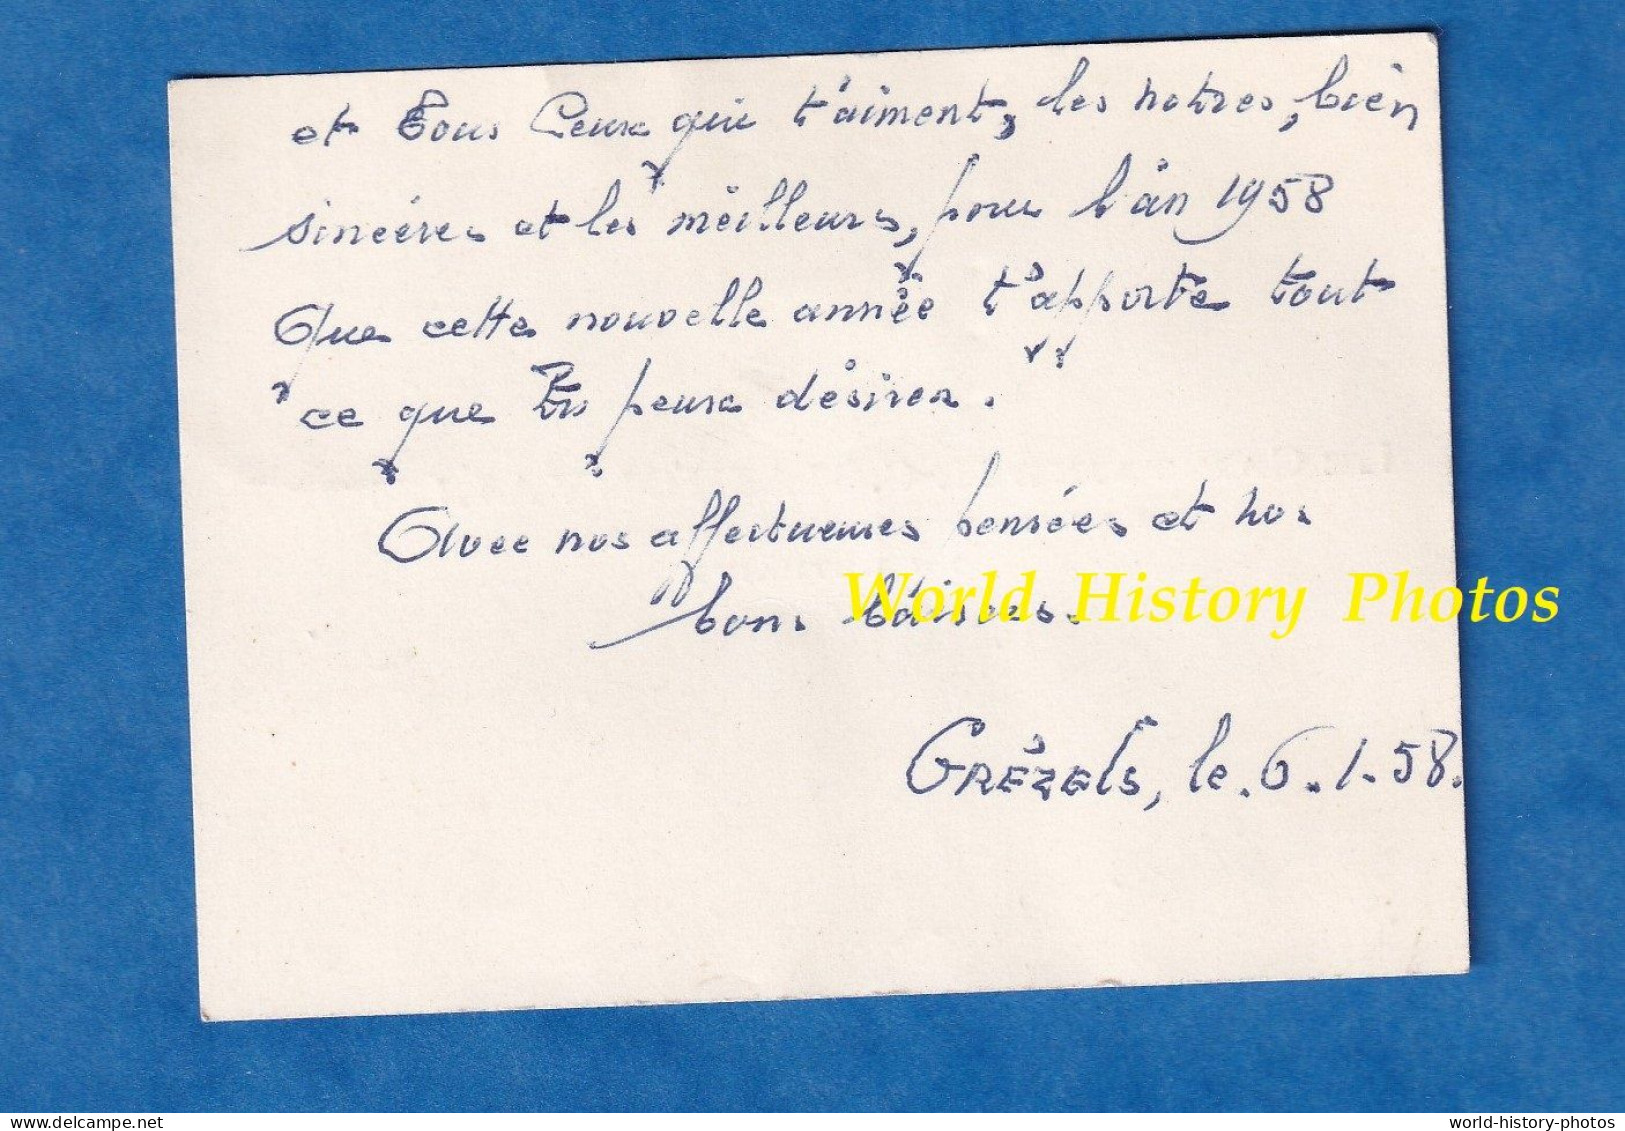 et Tous Ceux qui t'aiment, les notres, bien
sincères et les meilleurs, pour l'an 1958
Que cette nouvelle année t'apporte tout
ce que Tu peux désirer.
Avec nos affectueuses pensées et nos
bons baisers.
World History Photos
GRÉZELS, le. 6.1.58.
world-history-photos